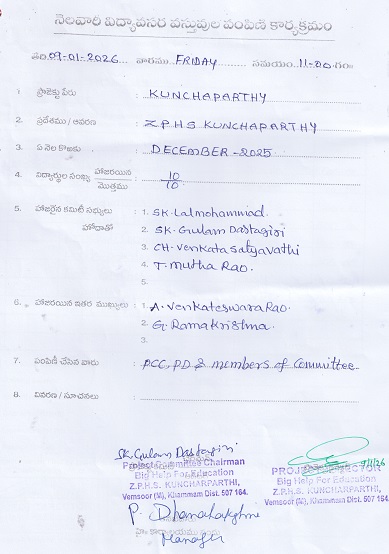 నెలవారీ విద్యావసర వస్తువుల పంపిణీ కార్యక్రమం
తేది 09-01-2026 వారము FRIDAY సమయం 11-00 గం॥
1. ప్రాజెక్టు పేరు : KUNCHAPARTHY
2. ప్రదేశము / ఆవరణ : ZPHS KUNCHAPARTHY
3. ఏ నెల కొఱకు : DECEMBER-2025
4. విద్యార్థుల సంఖ్య హాజరయిన / మొత్తము : 10/10
5. హాజరైన కమిటీ సభ్యులు హోదాతో : 1. SK. Lalmohammad.
2. SK. Gulam Dastagiri
3. CH. Venkata Satyavathi
4. T. Mutha Rao.
6. హాజరయిన ఇతర ముఖ్యులు : 1. A. Venkateswara Rao.
2. G. Ramakrishna.
3.
7. పంపిణీ చేసిన వారు : PCC, PD & members of Committee
8. వివరణ / సూచనలు :
SK. Gulam Dastagiri
Project Committee Chairman
Big Help For Education
Z.P.H.S. KUNCHARPARTHI,
Vemsoor (M), Khammam Dist. 507 164.
PROJECT DIRECTOR
Big Help For Education
Z.P.H.S. KUNCHARPARTHI,
Vemsoor (M), Khammam Dist. 507 164.
P.